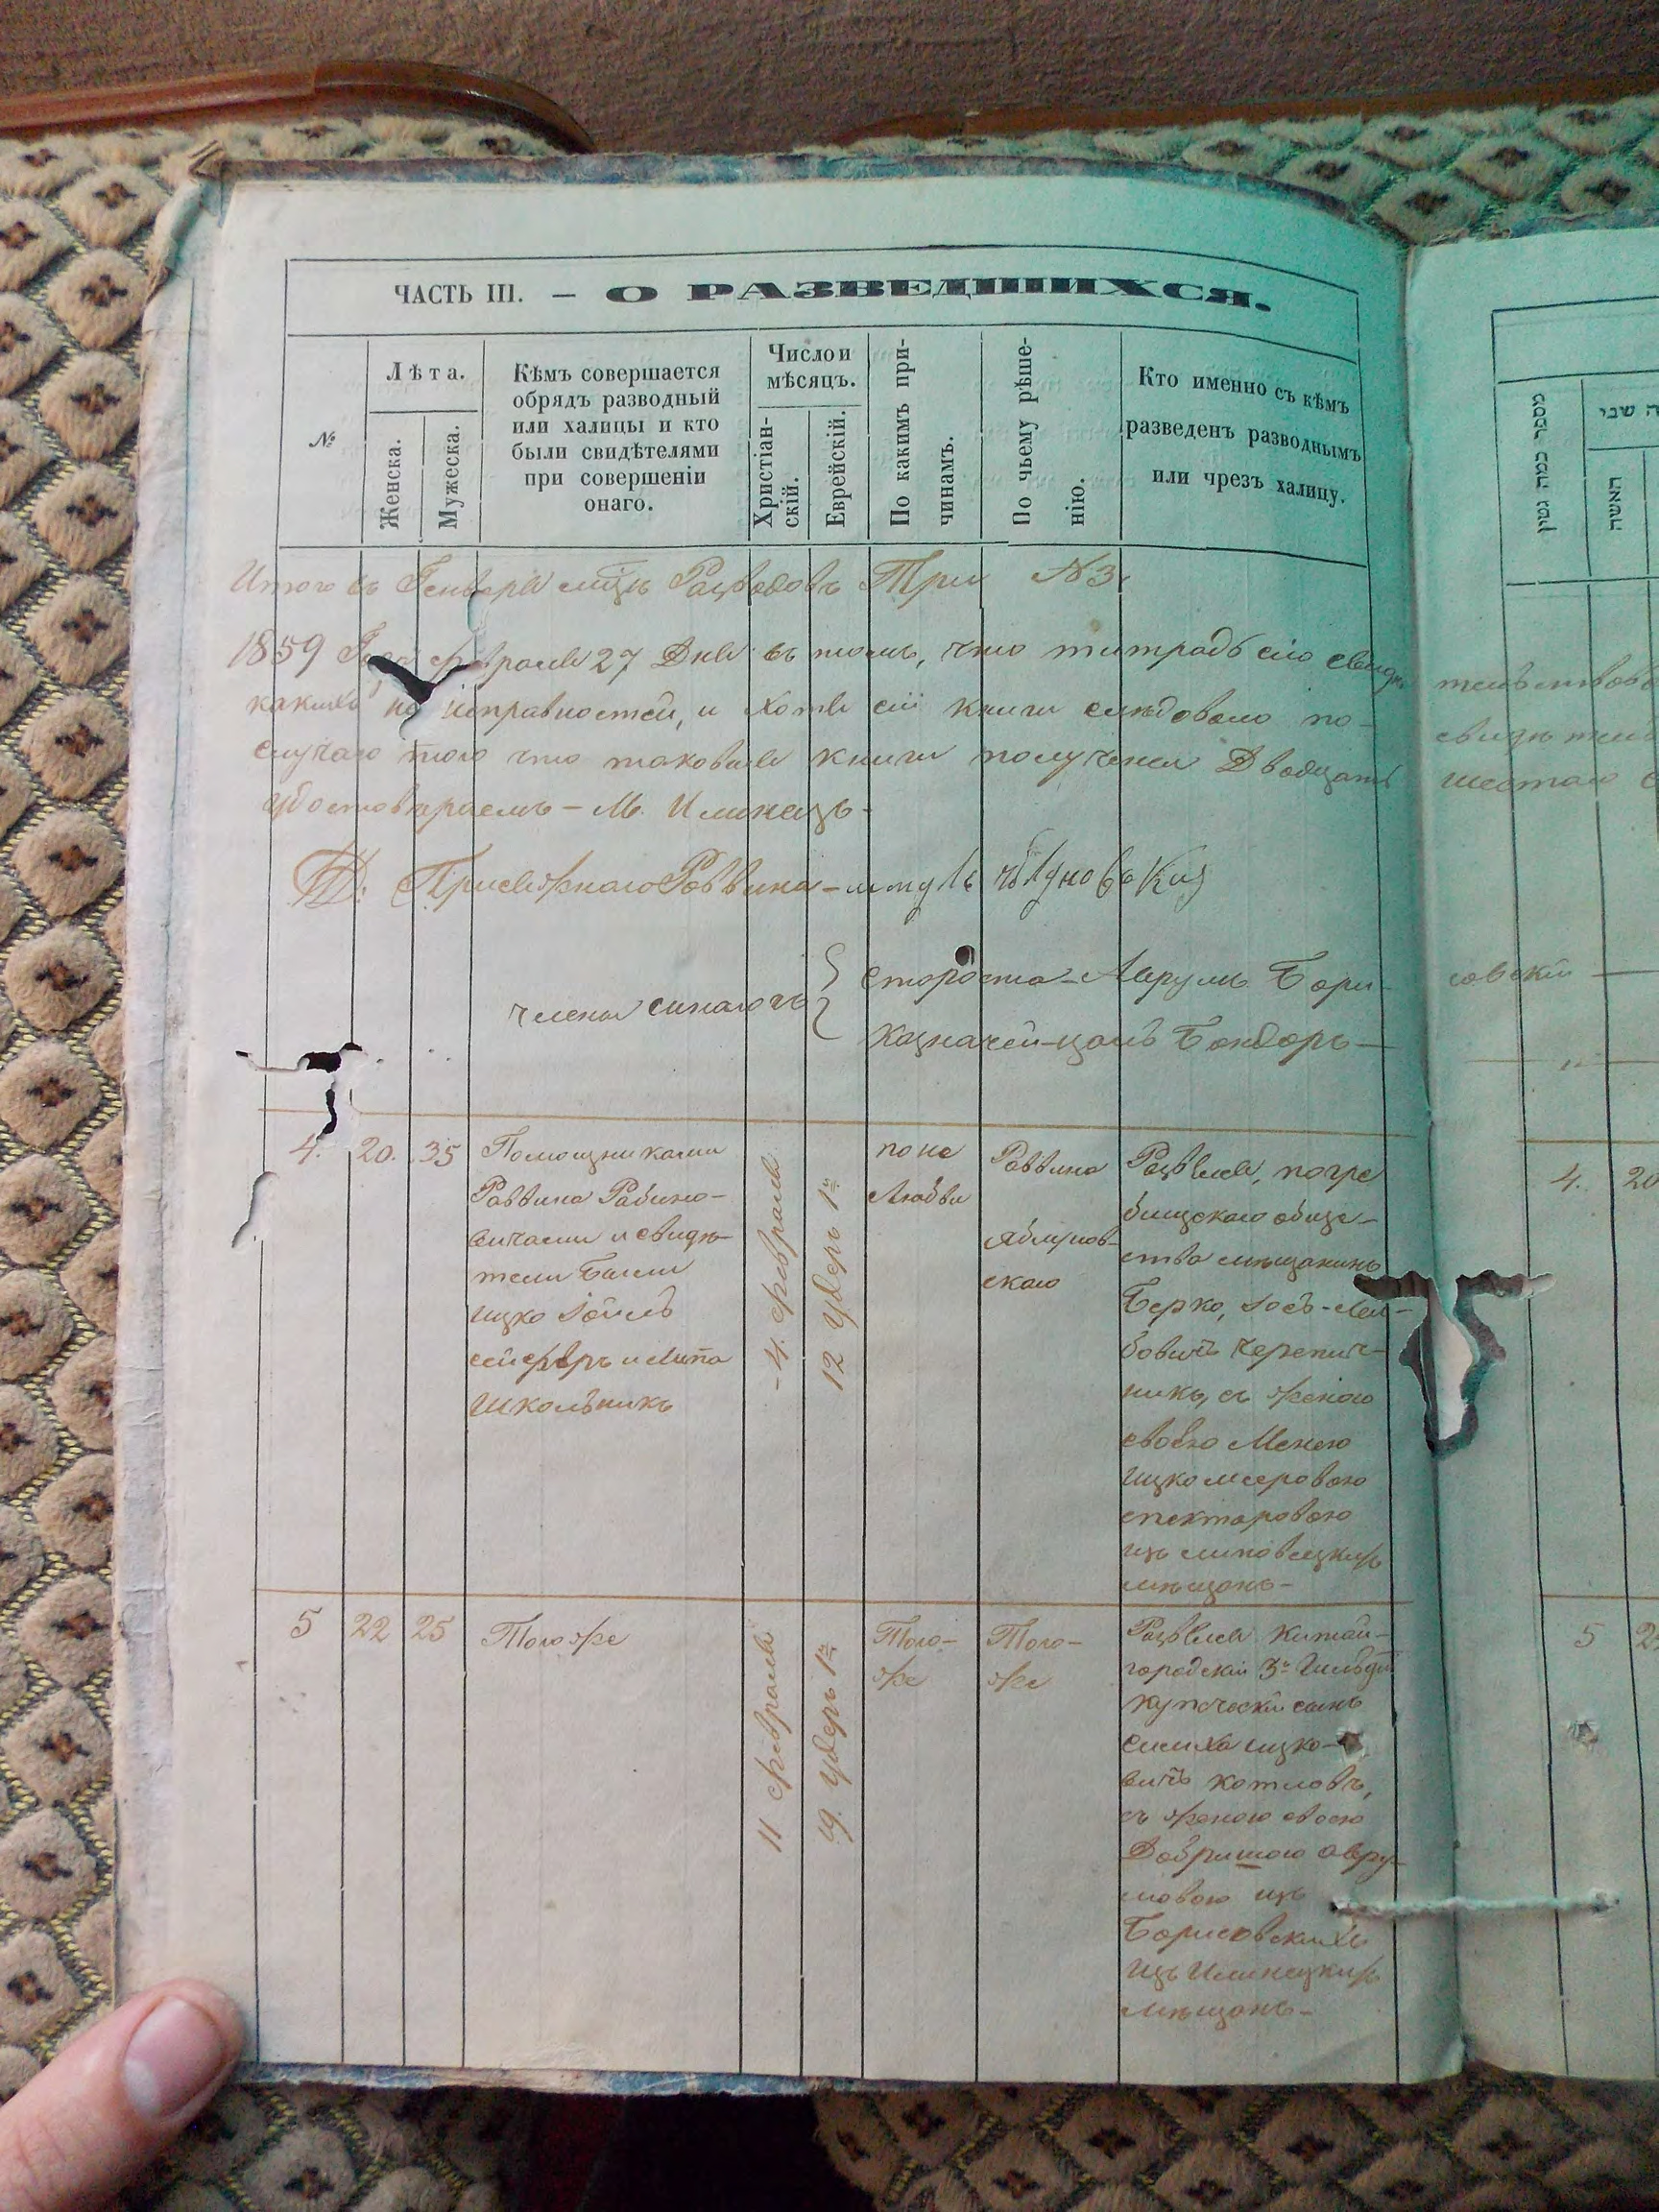 ЧАСТЬ III. — О РАЗВЕДШИХСЯ.
№
Лѣта.
Женска.
Мужеска.
Кѣмъ совершается
обрядъ разводный
или халицы и кто
были свидѣтелями
при совершеніи
онаго.
Число и
мѣсяцъ.
Христіан-
скій.
Еврейскій.
По какимъ при-
чинамъ.
По чьему рѣше-
нію.
Кто именно съ кѣмъ
разведенъ разводнымъ
или чрезъ халицу.
Итого въ Генваря Разводовъ Три №3.
1859 февраля 27 Дня въ томъ, что тетрадь сію свидѣ
какихъ неправностей, и хотя сіи книги слѣдовало по-
случаю того что таковыя книги получены Двадцать
удостовѣряемъ — М. Илинецъ-
Присяжнаго Раввина —
члены синагоги
Староста — Аврумъ Бори-
Казначей — Бондарь —
4. 20. 35
Помощниками
Раввина Рабино-
вичами и свидѣ-
тели
Ицко Іойль
и Липа
Школьникъ
4. февраля
12 Удеръ 1й
по не
любви
Раввина
Ямпов-
скаго
Развелся, погре
бищскаго обще-
ства мѣщанинъ
Берко, Іось-Лей-
бовичъ Черепич-
никъ, съ женою
своею Менею
Ицкомееровою
спекторовою
изъ липовецкихъ
мѣщанъ-
5 22 25
Того же
11 февраля
19. Удеръ 1й
Того-
же
Того-
же
Развелся Китай-
городскій 3й Гильдіи
купческій сынъ
Симха Ицко-
вичъ Котловъ,
съ женою своею
Добришою Авру-
мовою изъ
Борисовскихъ
Изъ Илинецкихъ
мѣщанъ-
מספר כמה גטין
האשה
ה שני
совскій
4. 20
5 2